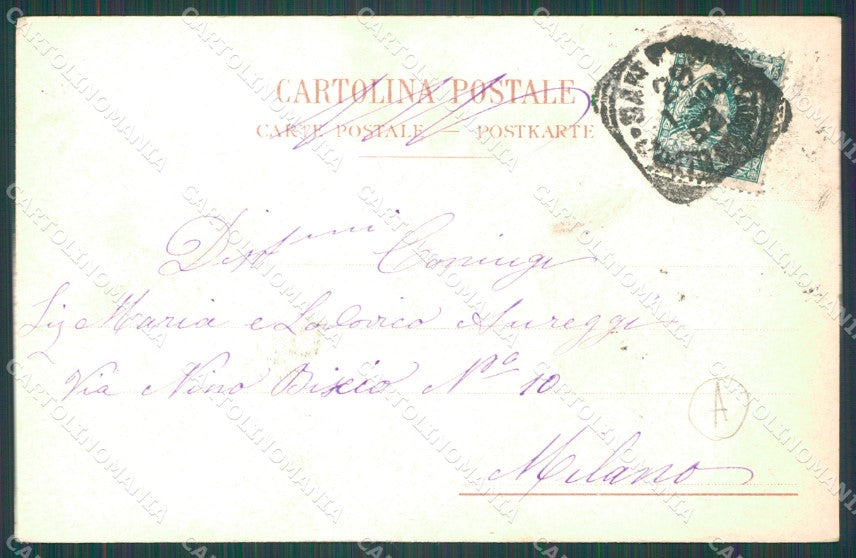 CARTOLINA POSTALE
CARTE POSTALE — POSTKARTE
Distmi Coniugi
Sig Maria e Lodovico Aureggi
Via Nino Bixio Nº 10
A
Milano
CARTOLINOMANIA